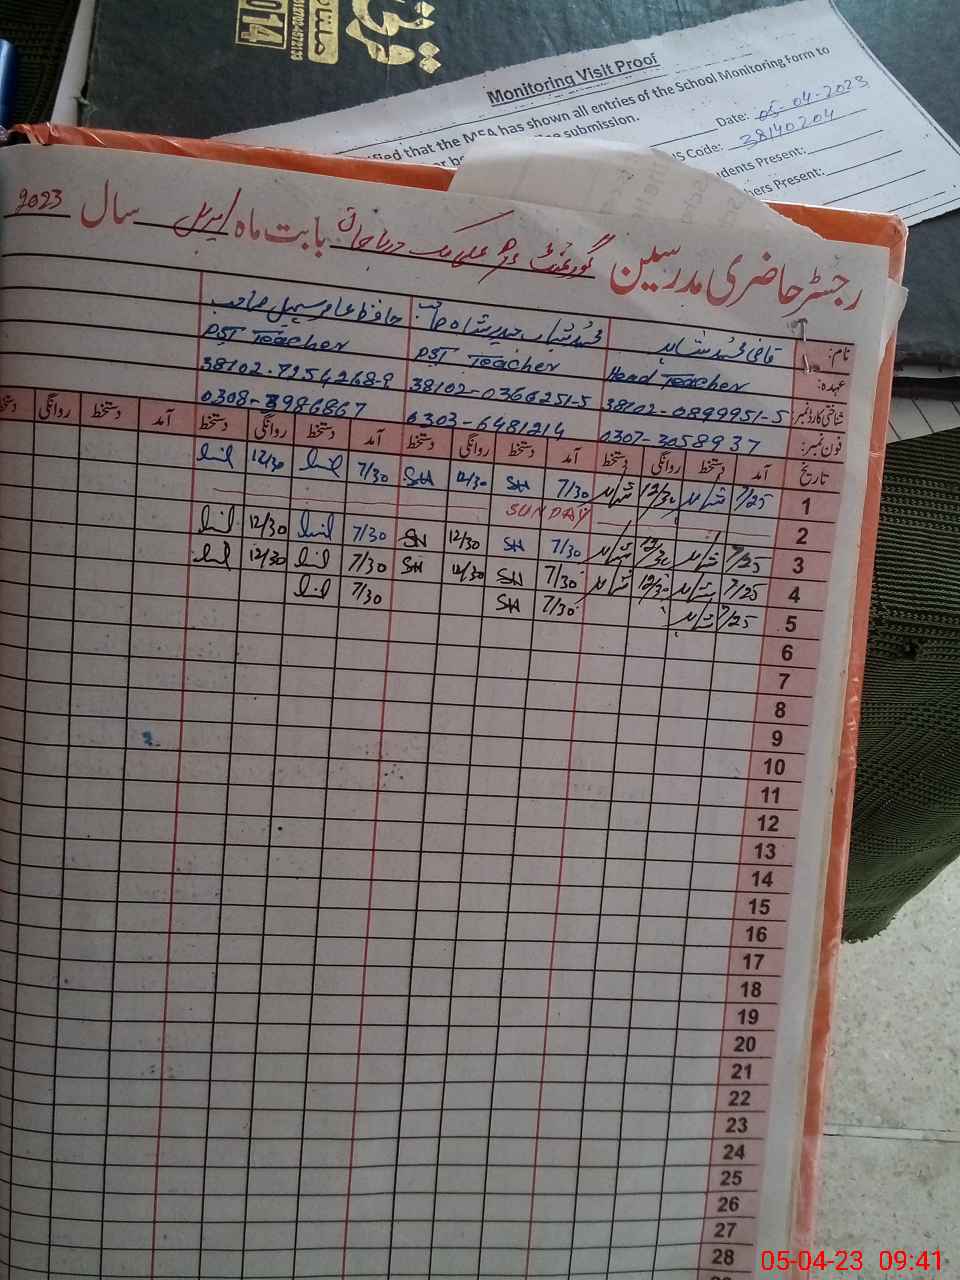 2014
Monitoring Visit Proof
ified that the MEA has shown all entries of the School Monitoring Form to
submission.
Date: 05-04-2023
S Code: 38140204
dents Present:
hers Present:
رجسٹر حاضری مدرسین گورنمنٹ بابت ماہ اپریل سال 2023
نام: قاضی محمد شاہد
حافظ عامر سہیل صاحب
عہدہ: Head Teacher PST Teacher PST Teacher
شناختی کارڈ نمبر: 38102-0899951-5 38102-0366251-5 38102-7254268-9
فون نمبر: 0307-3058937 0303-6481214 0308-3986867
تاریخ آمد دستخط روانگی دستخط آمد دستخط روانگی دستخط آمد دستخط روانگی دستخط آمد دستخط روانگی دستخط
1 7/25 شاہد 12/30 شاہد 7/30 SH 12/30 SH 7/30 12/30
2 SUNDAY
3 7/25 شاہد 12/30 شاہد 7/30 SH 12/30 SH 7/30 12/30
4 7/25 شاہد 12/30 شاہد 7/30 SH 12/30 SH 7/30 12/30
5 7/25 شاہد 7/30 SH 7/30
6
7
8
9
10
11
12
13
14
15
16
17
18
19
20
21
22
23
24
25
26
27
28
05-04-23 09:41